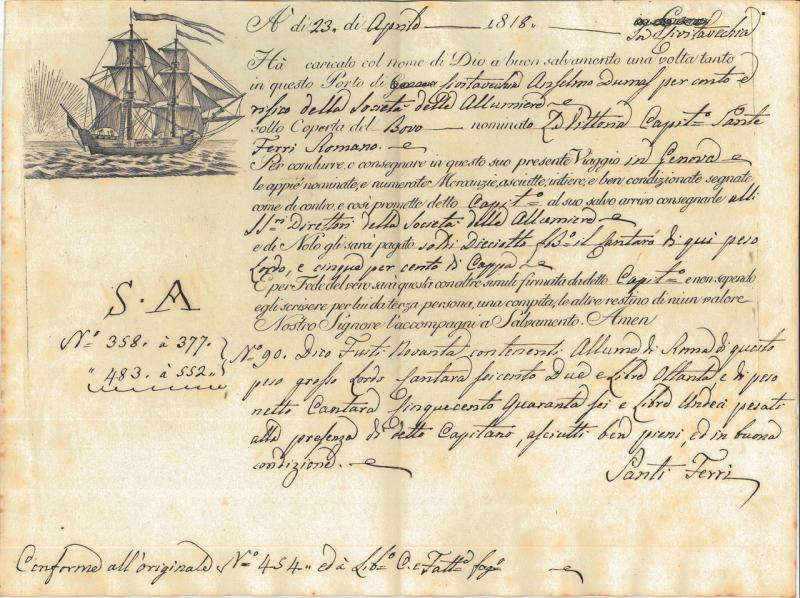 A di 23. di Aprile 1818. In Civitavecchia
Hà caricato col nome di Dio a buon salvamento una volta tanto
in questo Porto di Civitavecchia Anselmo Dumas per conto e
risico della Società delle Allumiere
sotto Coperta del Bovo nominato La Vittoria Capit.º Sante
Ferri Romano.
Per condurre, e consegnare in questo suo presente Viaggio in Genova
le appiè nominate, e numerate Mercanzie, asciutte, intiere, e ben condizionate segnate
come di contro, e così promette detto Capit.º al suo salvo arrivo consegnarle alli
SS.ri Direttori della Società delle Allumiere
e di Nolo gli sarà pagato soldi Dieciotto il Cantaro di qui peso
Lordo, e cinque per cento di Cappa.
E per Fede del vero sarà questa con altre simili firmata da detto Capit.º e non sapendo
egli scrivere per lui da terza persona, una compita, le altre restino di niun valore
Nostro Signore l'accompagni a Salvamento. Amen
S. A
N.º 358. à 377.
" 483. à 552 "
N.º 90. Dico Fusti Novanta contenenti Allume di Roma di questo
peso grosso Lordo Cantara seicento Due e Libre Ottanta, e di peso
netto Cantara Cinquecento Quaranta sei e Libre Undeci pesati
alla presenza di detto Capitano, asciutti ben pieni, ed in buona
condizione.
Santi Ferri
Conforme all'originale N.º 454 " ed à Lib.º C. e Fatt.e